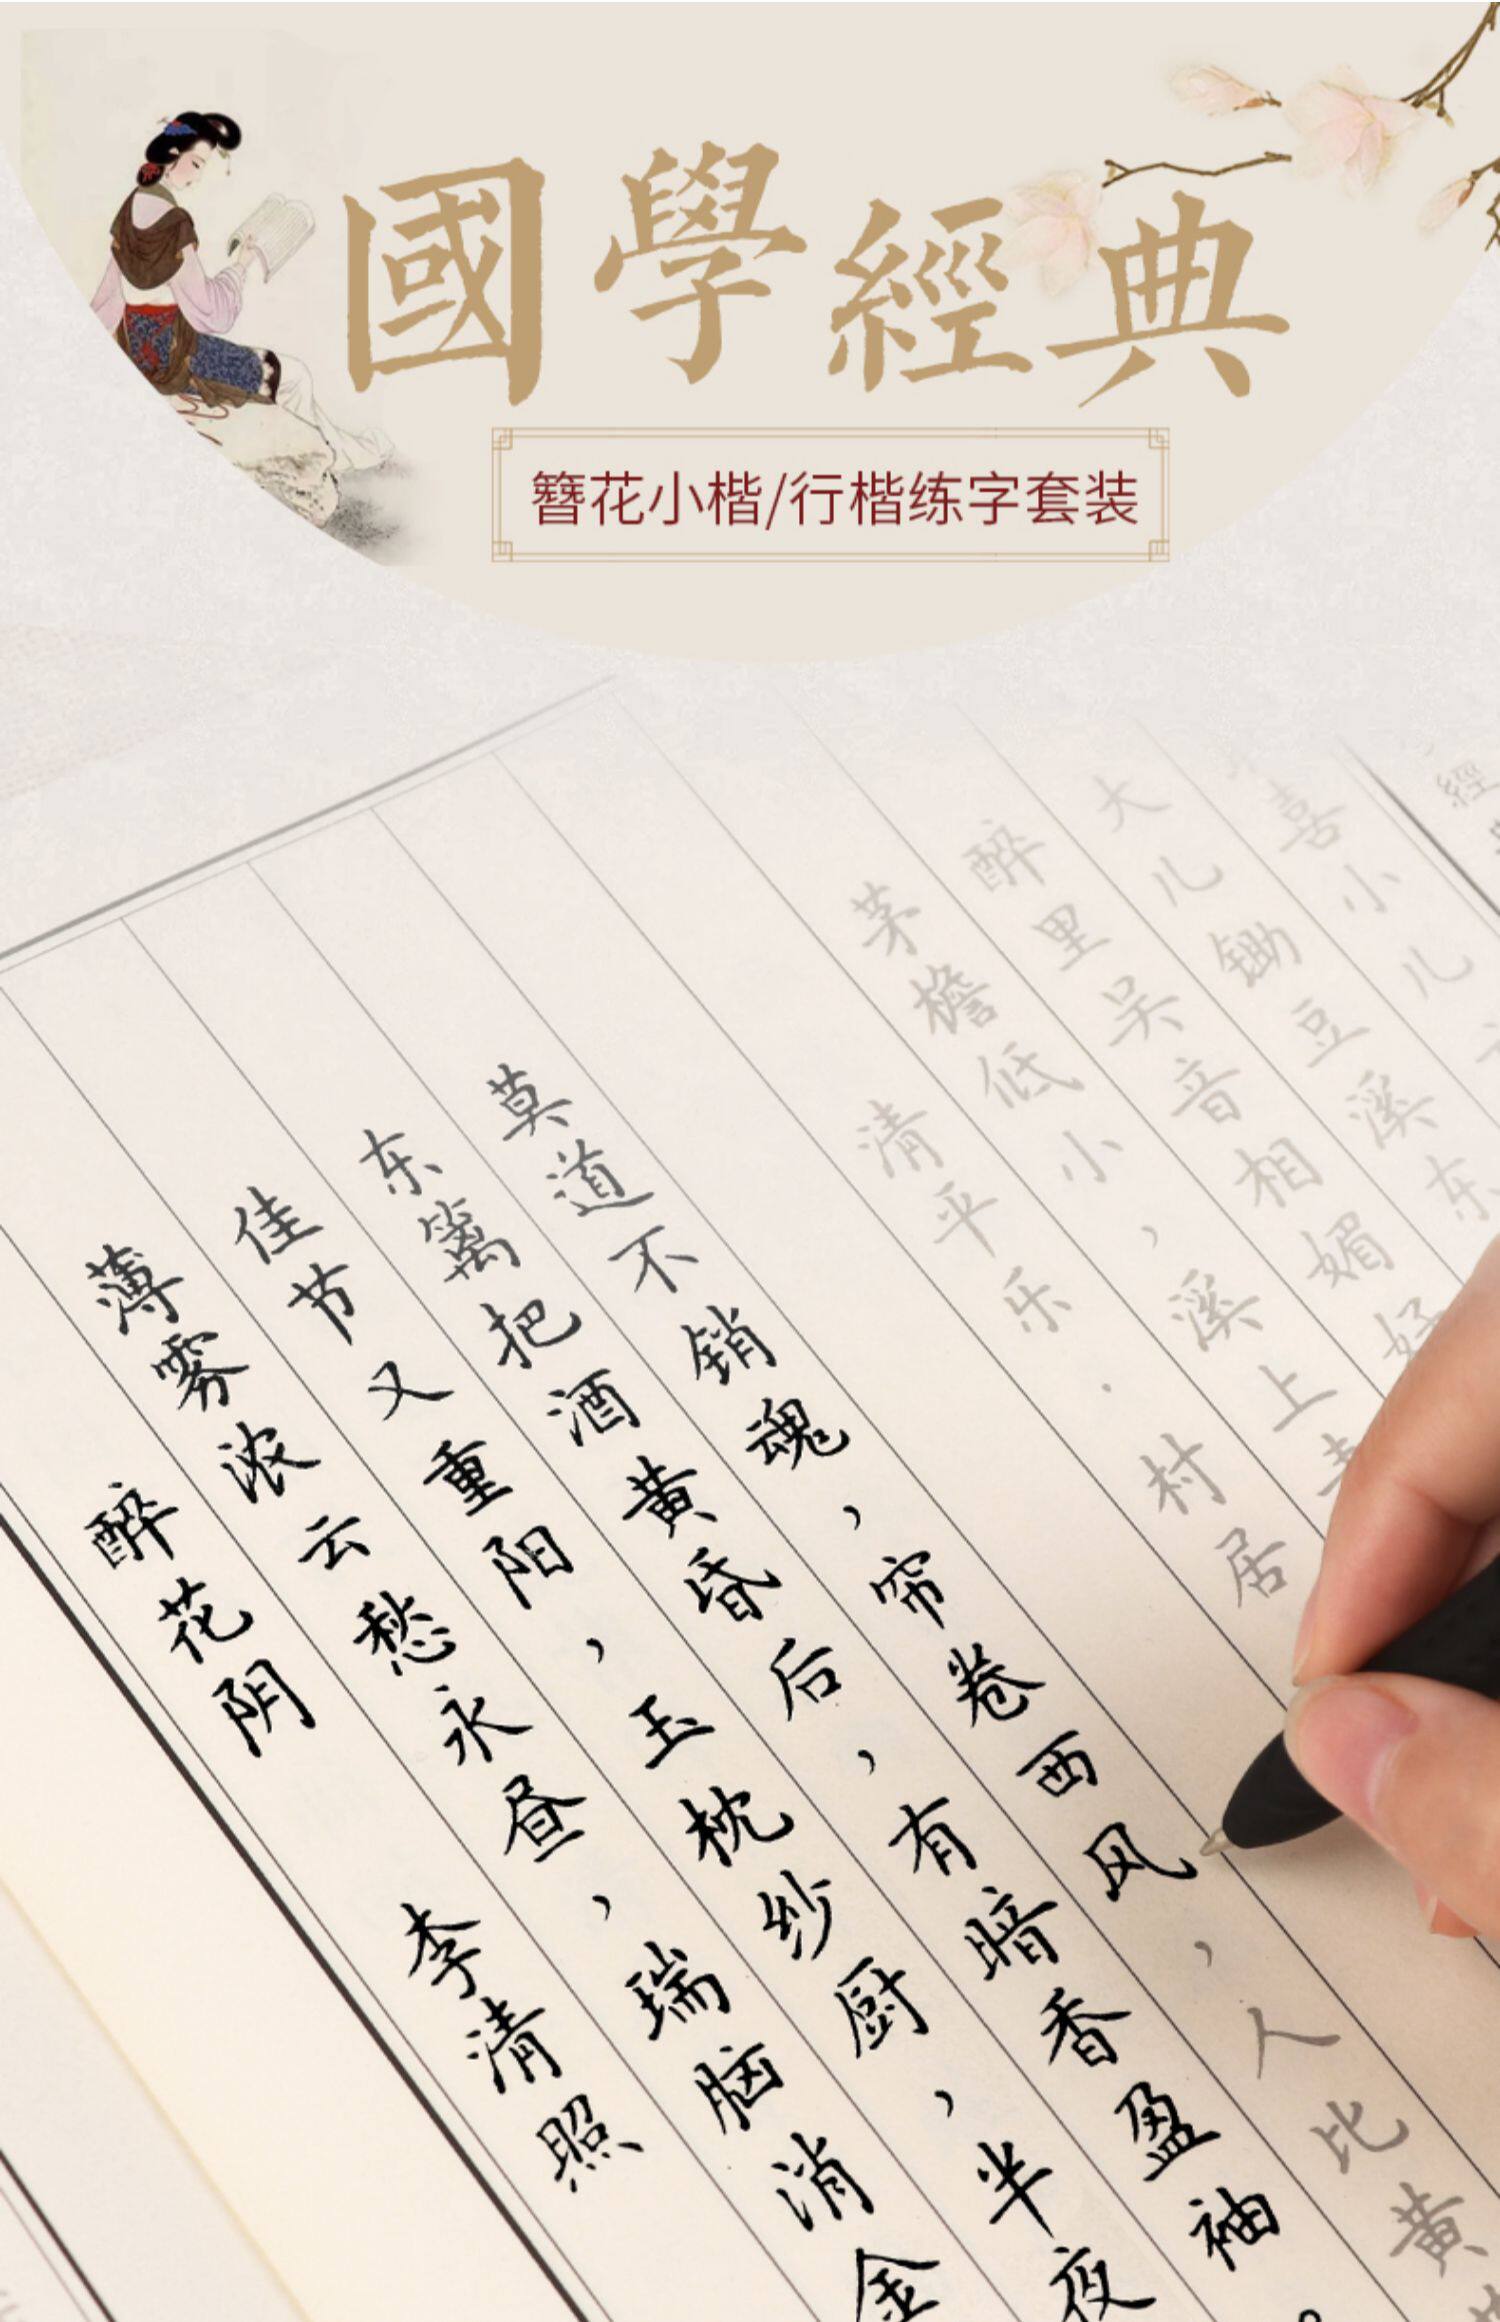 國學經典
簪花小楷/行楷练字套装
醉花阴 李清照
薄雾浓云愁永昼，瑞脑消金
佳节又重阳，玉枕纱厨，半夜
东篱把酒黄昏后，有暗香盈袖。
莫道不销魂，帘卷西风，人比黄
清平乐·村居
茅檐低小，溪上青
醉里吴音相媚好
大儿锄豆溪东
喜小儿
經